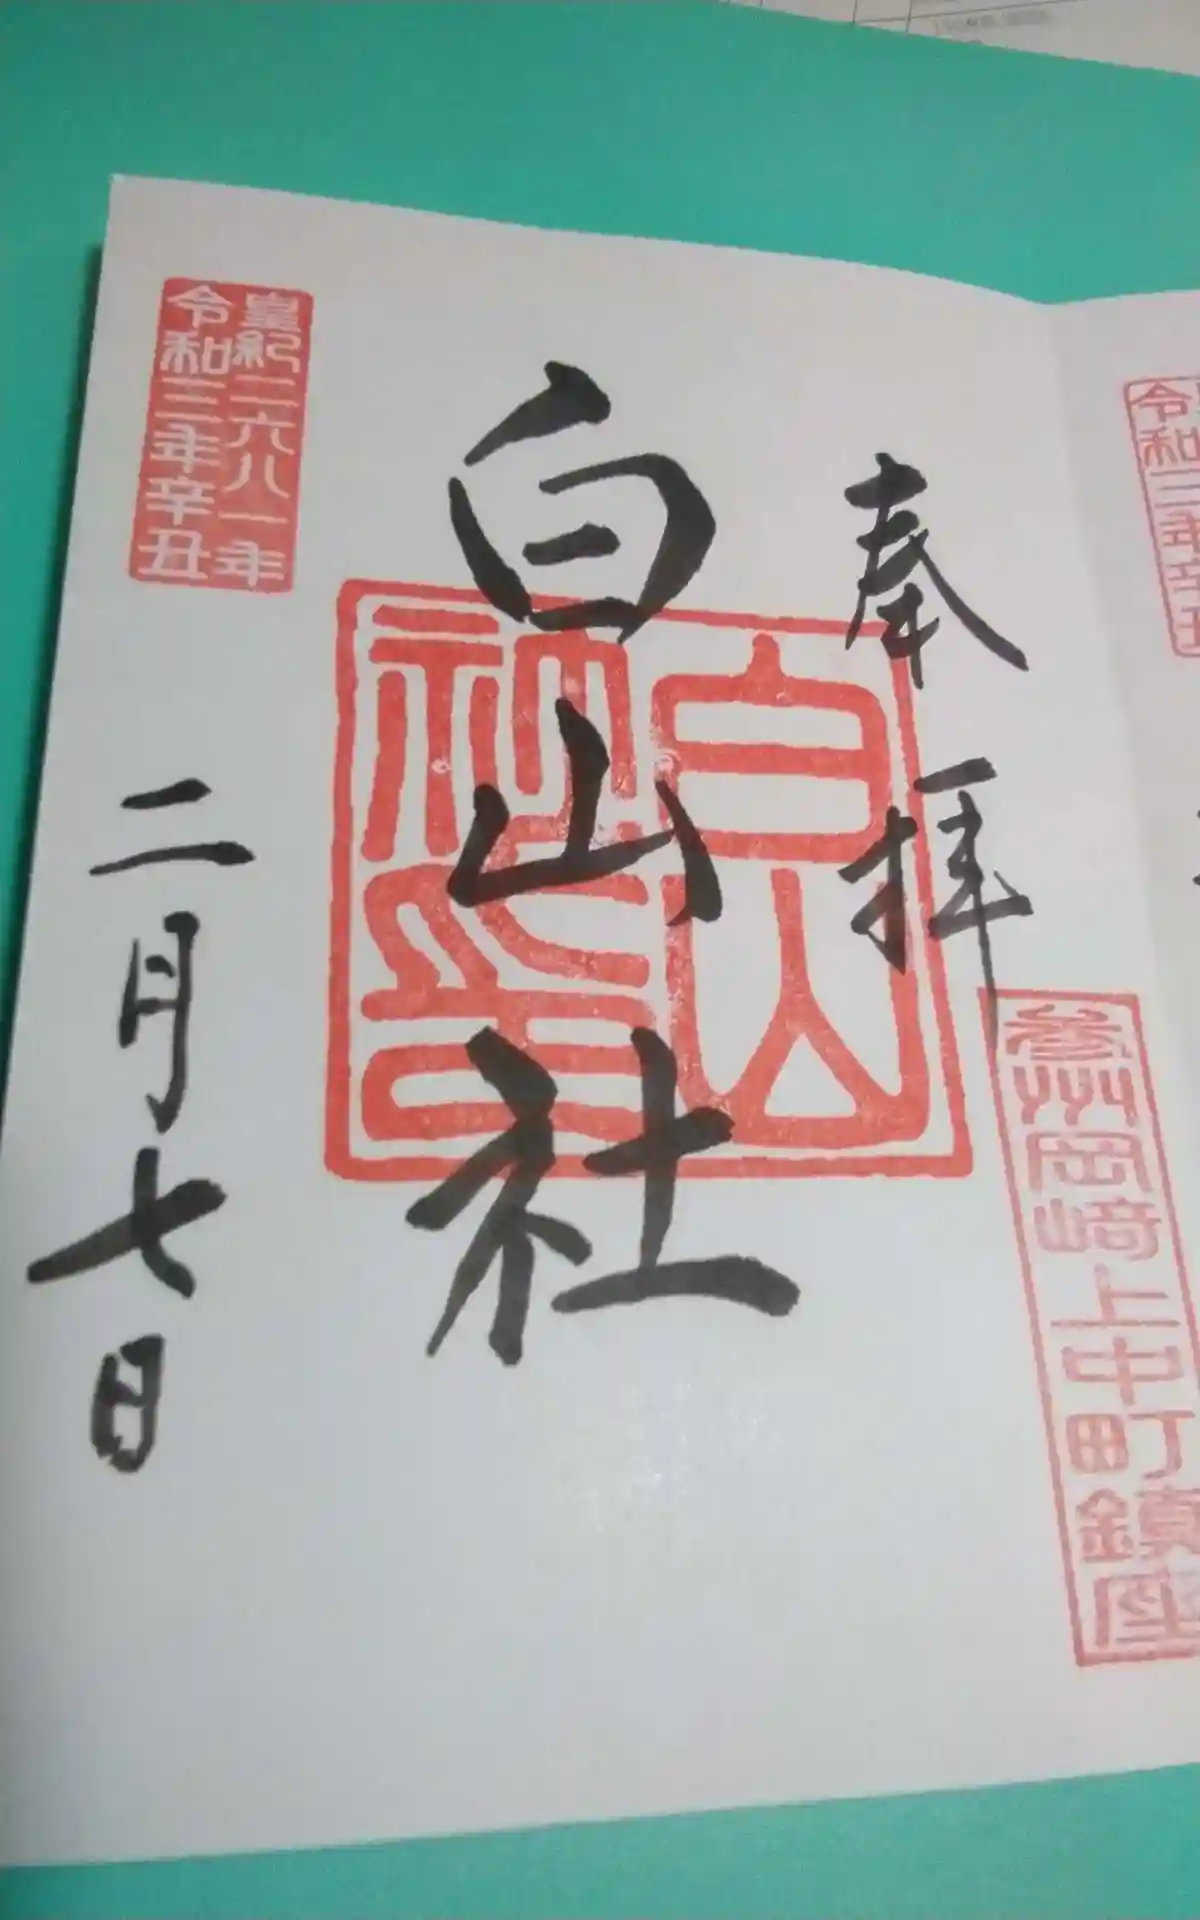 奉拝
参州岡崎上中町鎮座
白山社
白山社印
皇紀二六八一年
令和三年辛丑
二月七日
令和三年辛丑